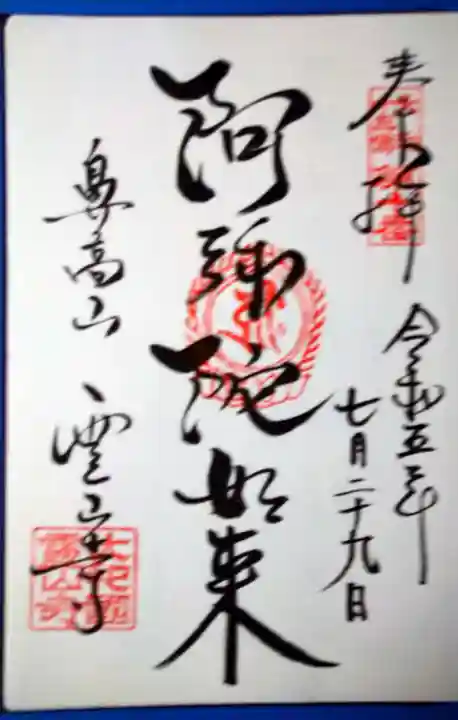 奉拝
令和五年
七月二十九日
阿弥陀如来
鼻高山 霊山寺